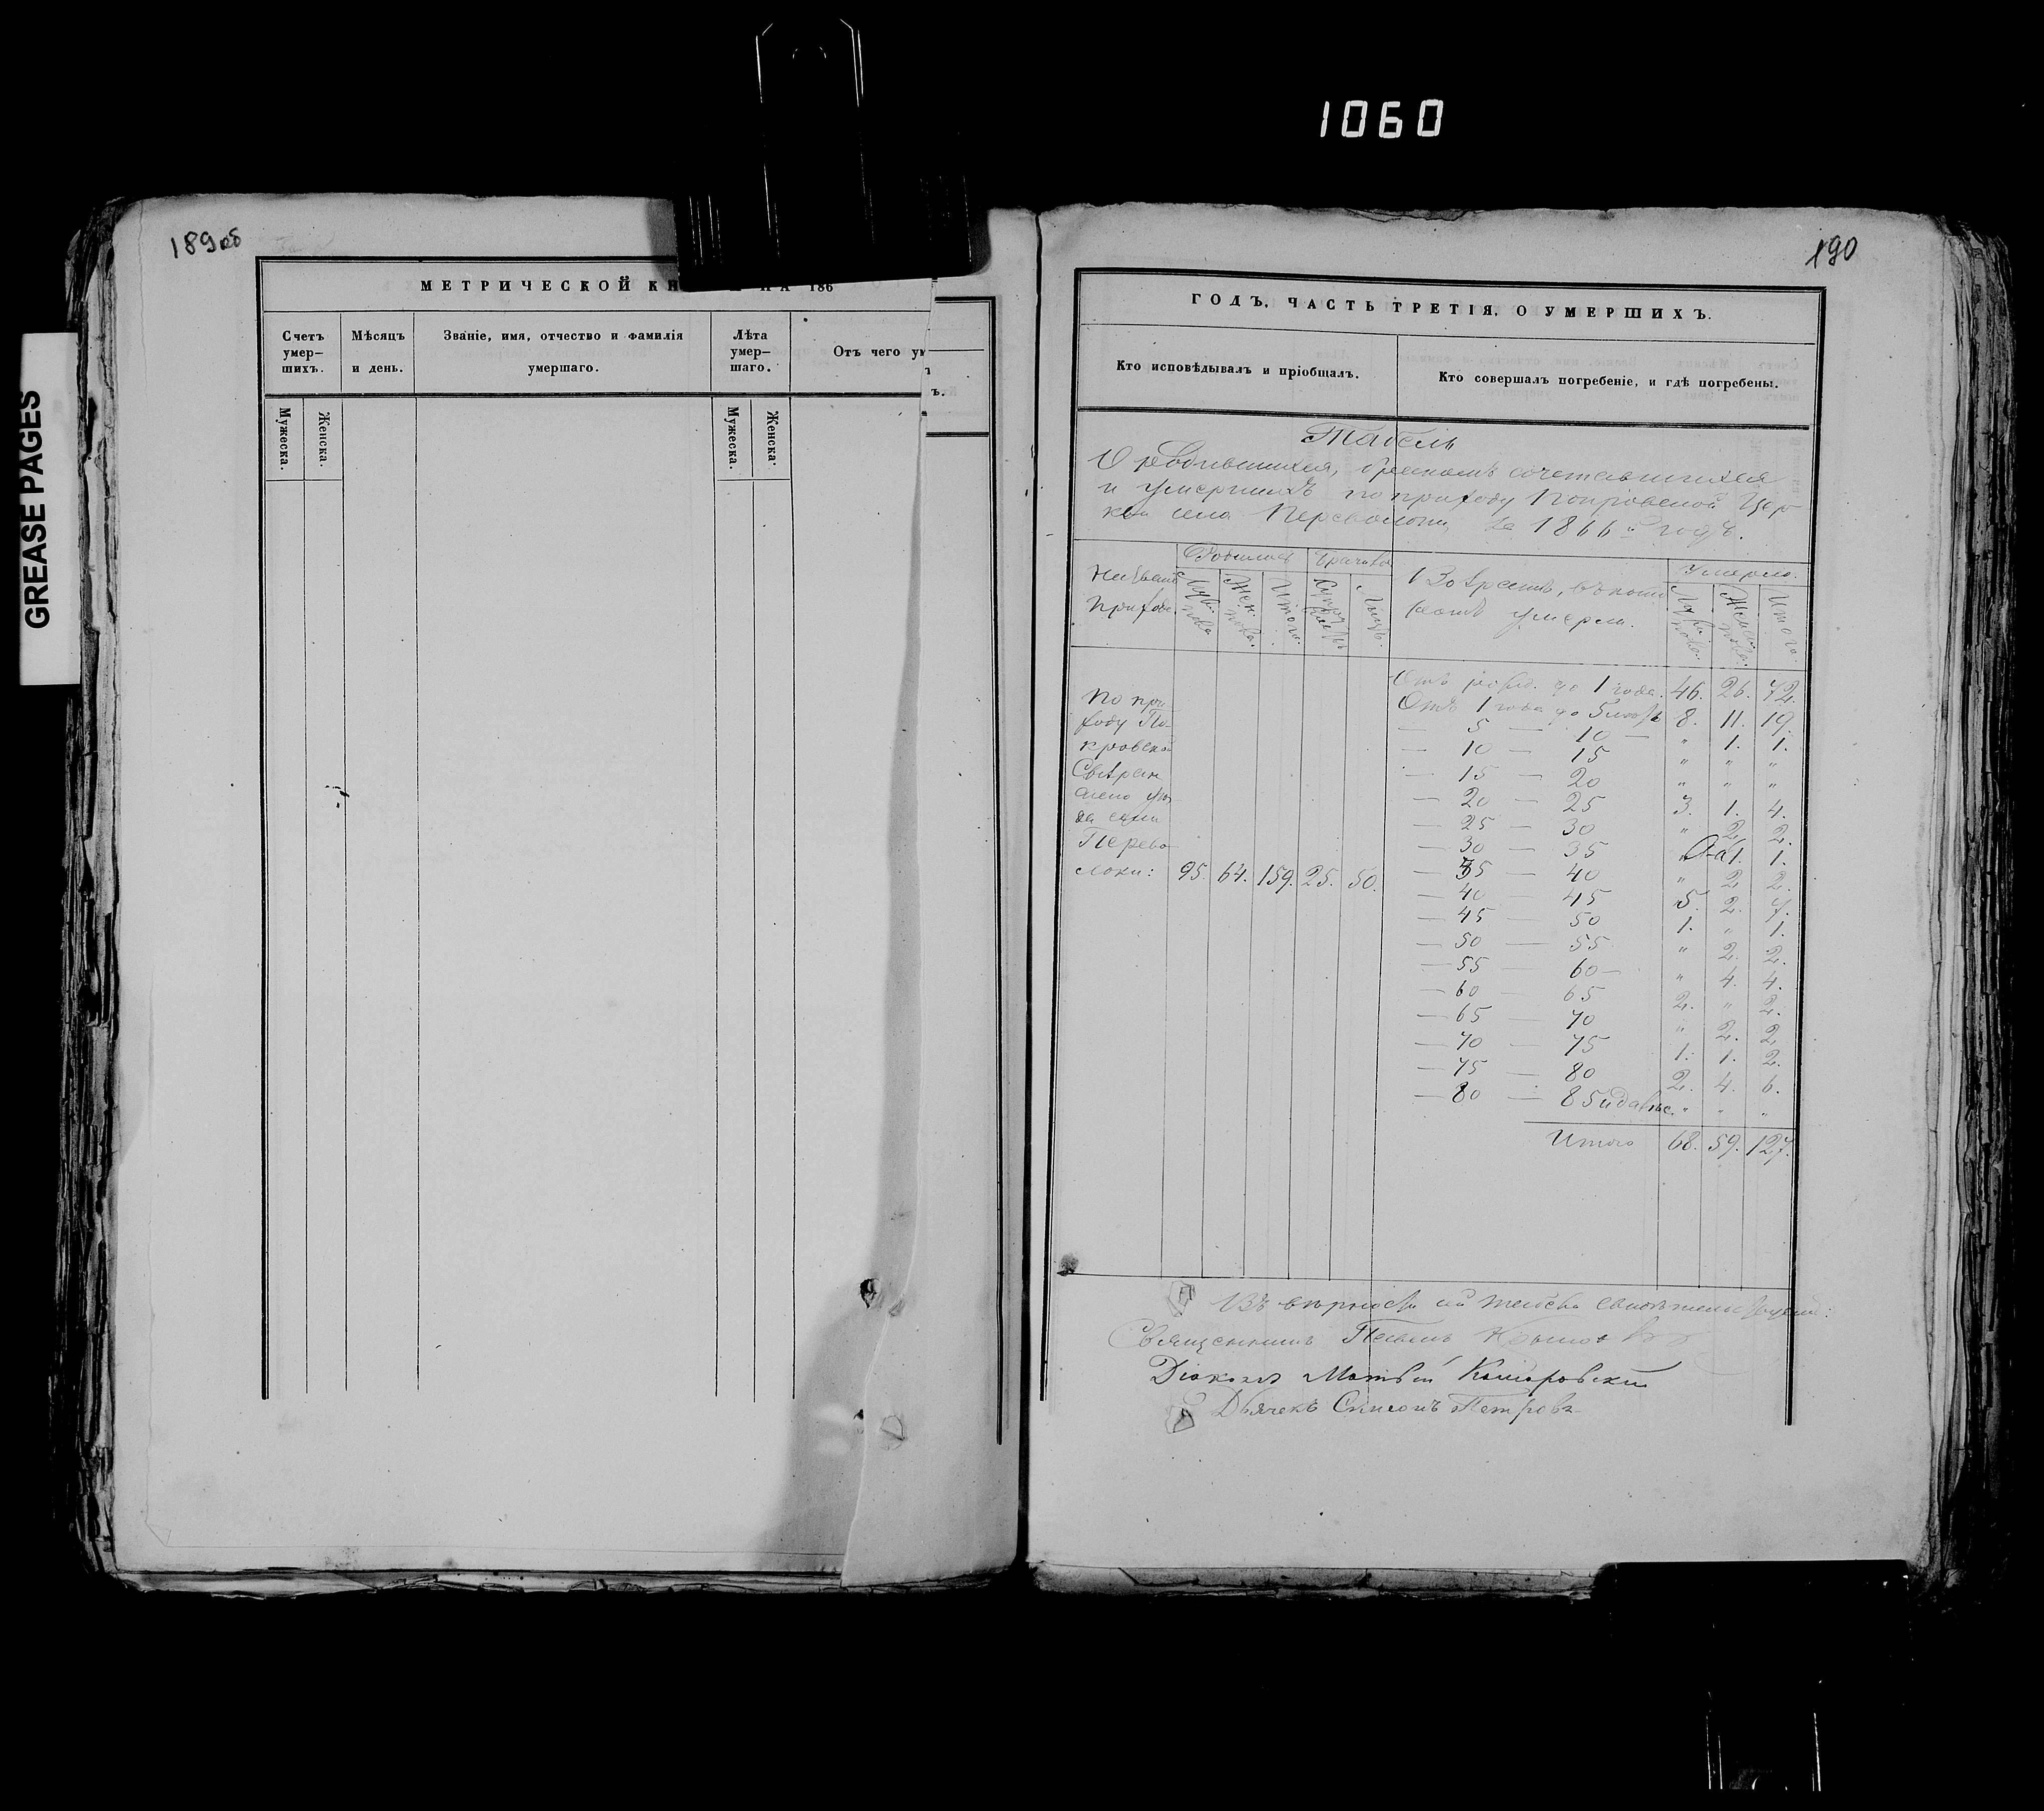 1060
GREASE PAGES
189об
МЕТРИЧЕСКОЙ КН НА 186
Счетъ умер–шихъ.
Мѣсяцъ и день.
Званіе, имя, отчество и фамилія умершаго.
Лѣта умер–шаго.
Отъ чего ум
ъ.
Мужеска.
Женска.
Мужеска.
Женска.
190
ГОДЪ, ЧАСТЬ ТРЕТІЯ, О УМЕРШИХЪ.
Кто исповѣдывалъ и пріобщалъ.
Кто совершалъ погребеніе, и гдѣ погребены.
Табель
О родившихся, бракомъ сочетавшихся
и умершихъ по приходу Покровской Цер
кви села Переволоки, за 1866й годъ.
Названіе прихода.
Родилось
Муж. пола
Жен. пола.
Итого.
Браковъ
Лицъ.
Возрастъ, въ кото
ромъ умерли.
Умерло.
Муж. пола.
Женс. пола.
Итого.
По при
ходу По
кровской
уѣз
да села
Перево
локи: 95. 64. 159. 25. 50.
Отъ рожд. до 1 года. 46. 26. 72.
Отъ 1 года до 5 лѣтъ 8. 11. 19.
— 5 — 10 — " 1. 1.
— 10 — 15 " " "
— 15 — 20 " " "
— 20 — 25 3. 1. 4.
— 25 — 30 " 2. 2.
— 30 — 35 " 1. 1.
— 35 — 40 " 2 2.
— 40 — 45 5. 2. 7.
— 45 — 50 1. " 1.
— 50 — 55 " 2. 2.
— 55 — 60 — " 4. 4.
— 60 — 65 2. " 2.
— 65 — 70 " 2. 2
— 70 — 75 1. 1. 2.
— 75 — 80 2. 4. 6.
— 80 — 85 и далѣе. " " "
Итого 68. 59. 127.
Въ вѣрности сей табели свидѣтельствуемъ:
Священникъ Павелъ
Діаконъ Матвѣй
Дьячекъ Симеонъ Петровъ